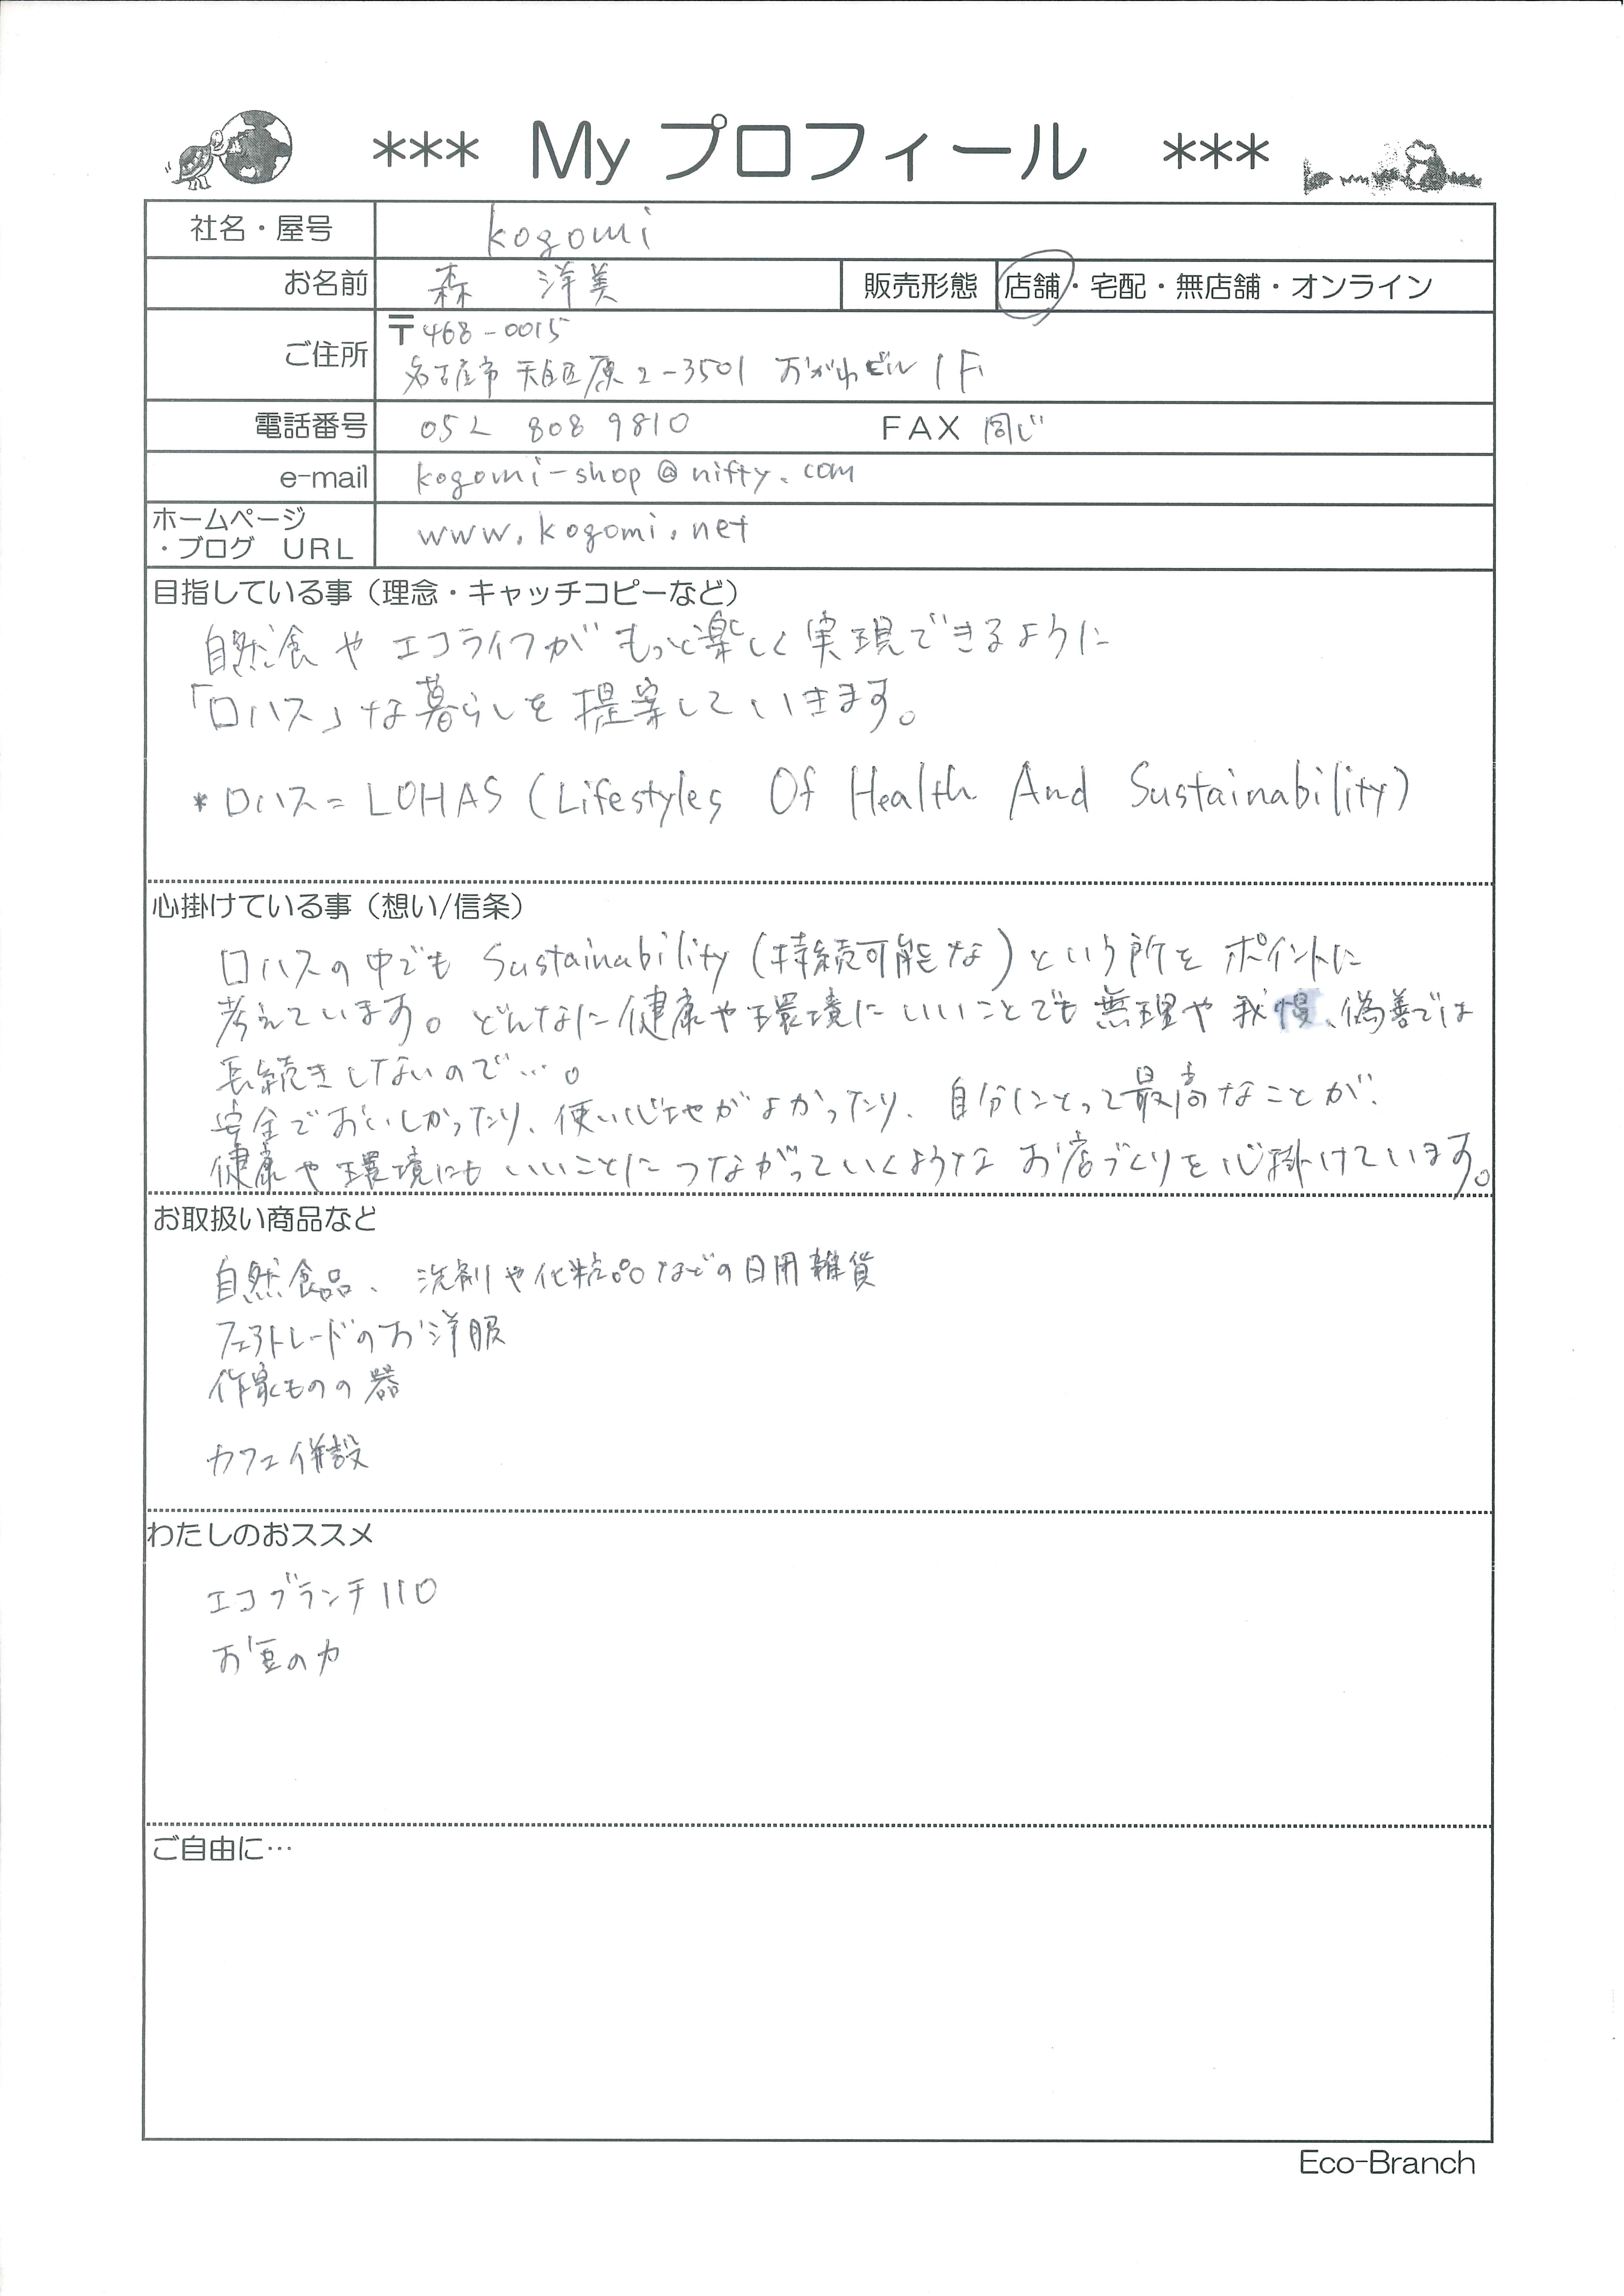 *** My プロフィール ***
社名・屋号 kogomi
お名前 森 洋美 販売形態 店舗・宅配・無店舗・オンライン
ご住所 〒468-0015
名古屋市天白区原2-3501 おがわビル1F
電話番号 052 808 9810 FAX 同じ
e-mail kogomi-shop@nifty.com
ホームページ
・ブログ URL www.kogomi.net
目指している事（理念・キャッチコピーなど）
自然食や エコライフが もっと楽しく実現できるように
「ロハス」な暮らしを提案していきます。
*ロハス=LOHAS (Lifestyles Of Health And Sustainability)
心掛けている事（想い/信条）
ロハスの中でも Sustainability (持続可能な) という所を ポイントに
考えています。どんなに健康や環境にいいことでも無理や我慢、偽善では
長続きしないので…。
安全でおいしかったり、使い心地がよかったり、自分にとって最高なことが、
健康や環境にも いいことに つながっていくような お店づくりを心掛けています。
お取扱い商品など
自然食品、洗剤や化粧品などの日用雑貨
フェアトレードのお洋服
作家ものの器
カフェ併設
わたしのおススメ
エコブランチ110
お豆の力
ご自由に…
Eco-Branch